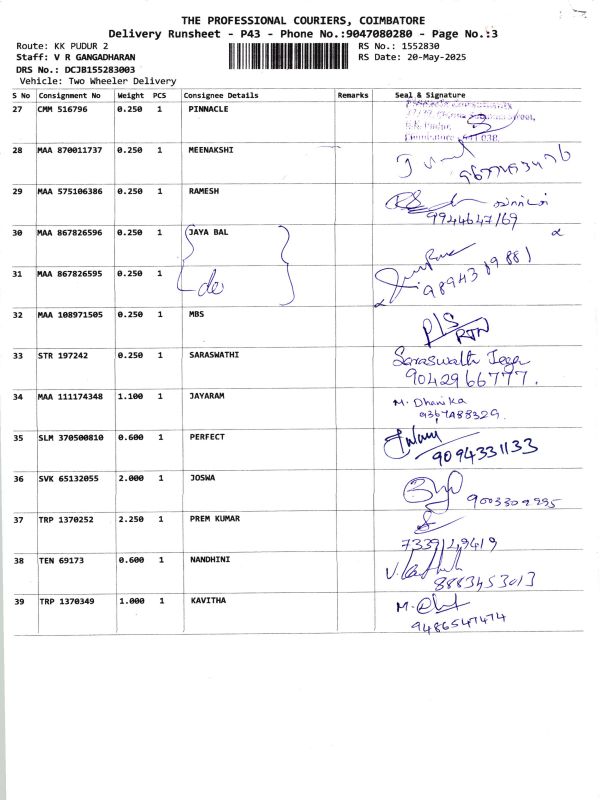 THE PROFESSIONAL COURIERS, COIMBATORE
Delivery Runsheet - P43 - Phone No.:9047080280 - Page No.:3
Route: KK PUDUR 2 RS No.: 1552830
Staff: V R GANGADHARAN RS Date: 20-May-2025
DRS No.: DCJB155283003
Vehicle: Two Wheeler Delivery
S No Consignment No Weight PCS Consignee Details Remarks Seal & Signature
27 CMM 516796 0.250 1 PINNACLE
28 MAA 870011737 0.250 1 MEENAKSHI
29 MAA 575106386 0.250 1 RAMESH
9944647169
30 MAA 867826596 0.250 1 JAYA BAL
31 MAA 867826595 0.250 1 do
9894319881
32 MAA 108971505 0.250 1 MBS
P/S
RTN
33 STR 197242 0.250 1 SARASWATHI Saraswathi
9042966777.
34 MAA 111174348 1.100 1 JAYARAM M. Dhanika
35 SLM 370500810 0.600 1 PERFECT
9094331133
36 SVK 65132055 2.000 1 JOSWA
37 TRP 1370252 2.250 1 PREM KUMAR
7339129419
38 TEN 69173 0.600 1 NANDHINI
8883453013
39 TRP 1370349 1.000 1 KAVITHA M.
9486547474